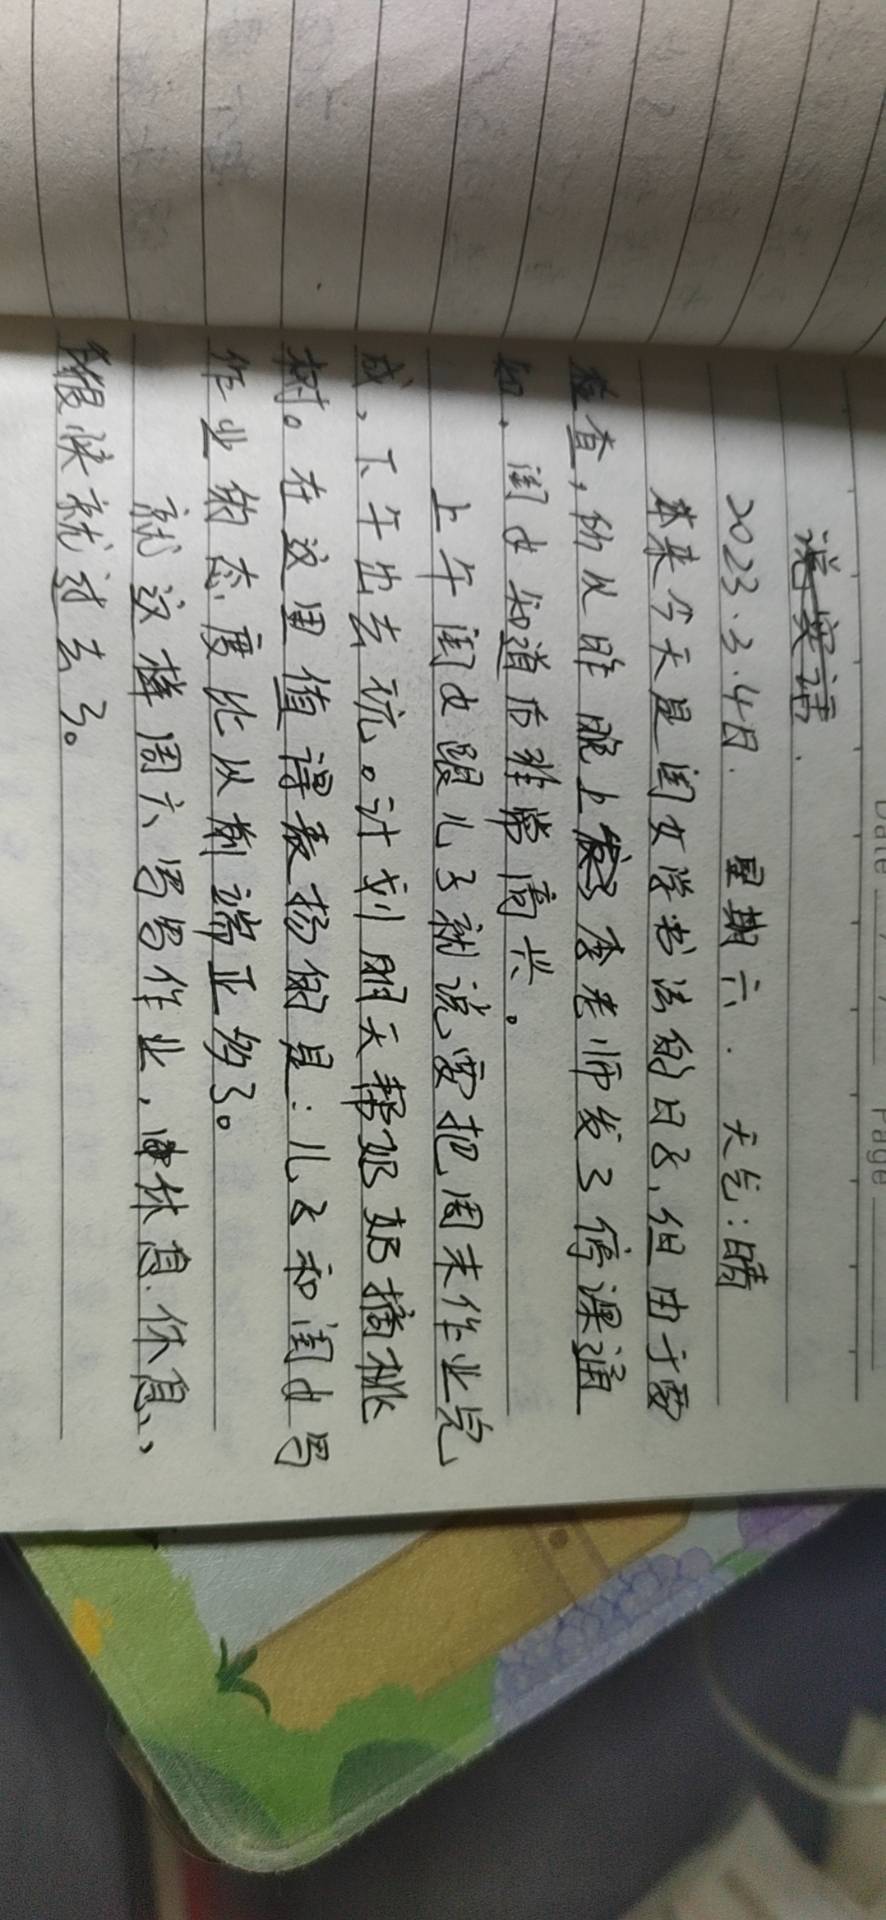 Date
Page
说实话.
2023.3.4日. 星期六. 天气:晴
本来今天是闺女学书法的日子,但由于要
检查,所以昨晚上李老师发了停课通
知,闺女知道后非常高兴。
上午闺女跟儿子就说要把周末作业完
成,下午出去玩。计划明天帮奶奶摘桃
树。在这里值得表扬的是:儿子和闺女写
作业的态度比从前端正多了。
就这样周六写写作业,休息休息,
很快就过去了。